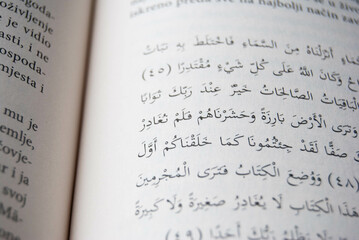 goda.
oživljenje
je vidio
asti, i ne
ospoda.
mjesta i
mu je
emlje,
žovje-
r i ja
svoj
Mā-
iskreno preda sve na najbolji način za
أَنْزَلْنَاهُ مِنَ السَّمَاءِ فَاخْتَلَطَ بِهِ نَبَاتُ
وَكَانَ اللَّهُ عَلَى كُلِّ شَيْءٍ مُقْتَدِرًا (٤٥)
الْبَاقِيَاتُ الصَّالِحَاتُ خَيْرٌ عِنْدَ رَبِّكَ ثَوَابًا
وَتَرَى الْأَرْضَ بَارِزَةً وَحَشَرْنَاهُمْ فَلَمْ نُغَادِرْ
صَفًّا لَقَدْ جِئْتُمُونَا كَمَا خَلَقْنَاكُمْ أَوَّلَ
(٤٨) وَوُضِعَ الْكِتَابُ فَتَرَى الْمُجْرِمِينَ
هَذَا الْكِتَابِ لَا يُغَادِرُ صَغِيرَةً وَلَا كَبِيرَةً
رَبُّكَ أَحَدًا (٤٩)